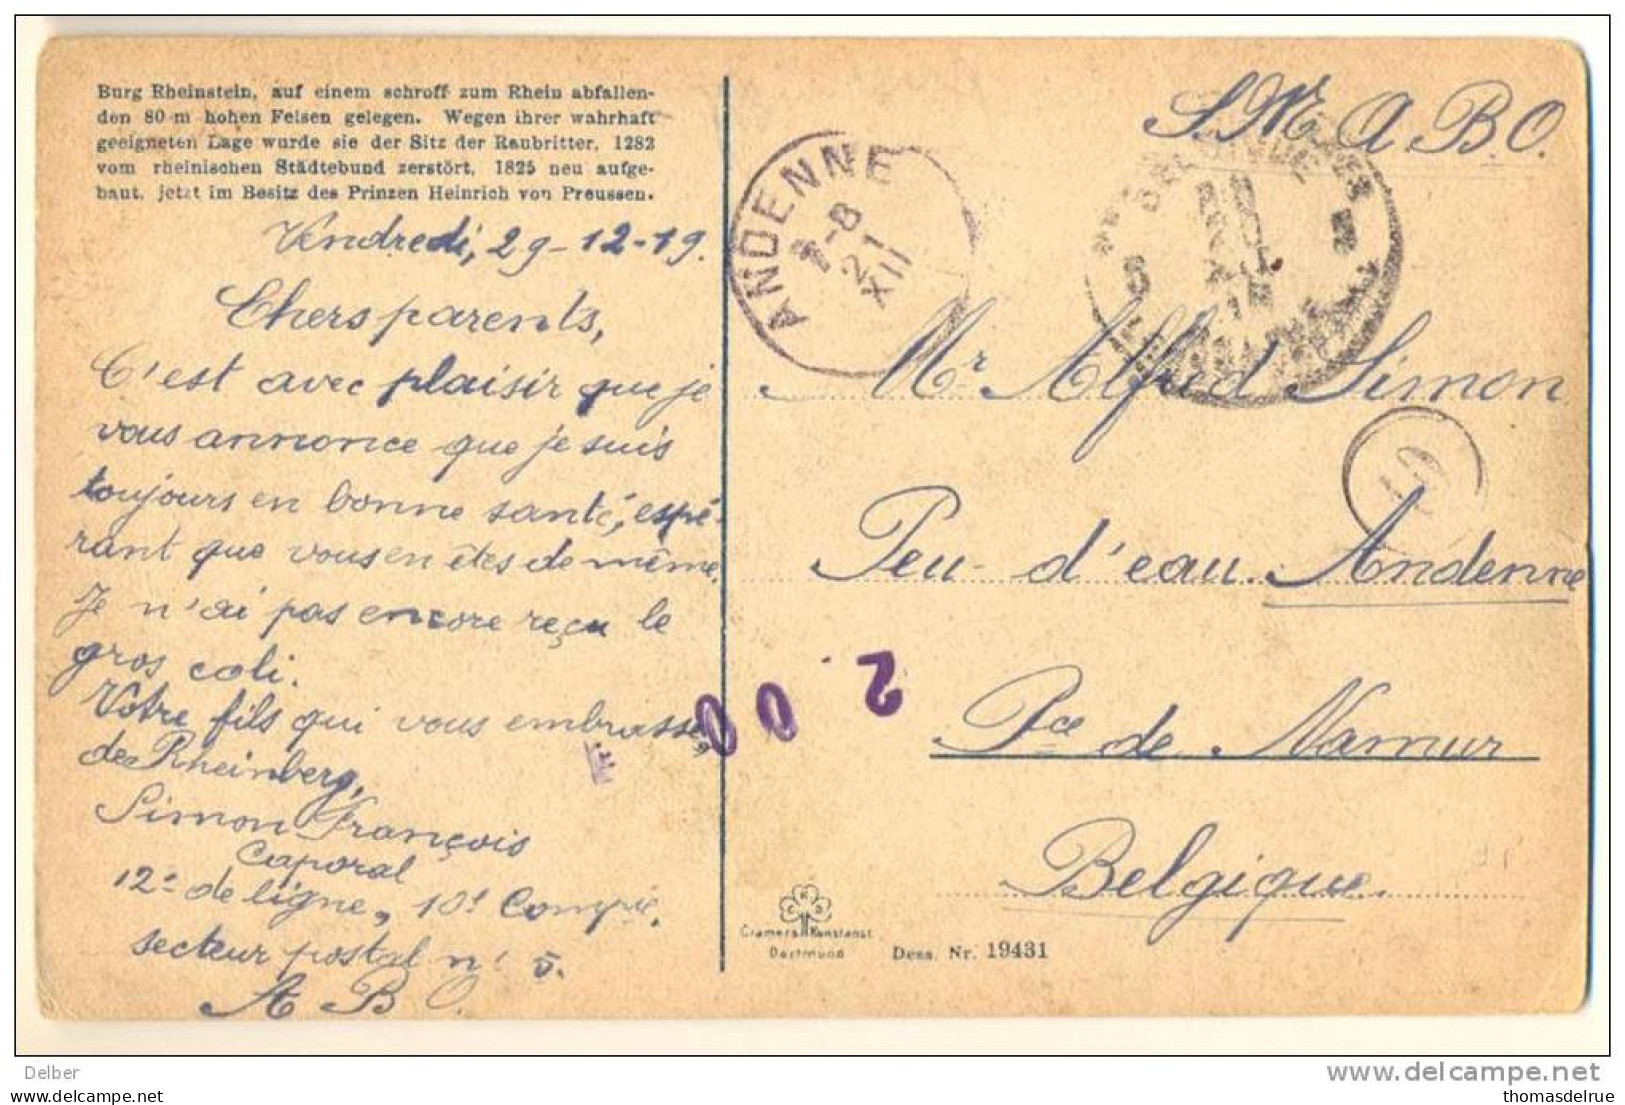 Burg Rheinstein, auf einem schroff zum Rhein abfallen-
den 80 m hohen Felsen gelegen. Wegen ihrer wahrhaft
geeigneten Lage wurde sie der Sitz der Raubritter, 1282
vom rheinischen Städtebund zerstört, 1825 neu aufge-
baut, jetzt im Besitz des Prinzen Heinrich von Preussen.
Vendredi, 29-12-19.
Chers parents,
C'est avec plaisir que je
vous annonce que je suis
toujours en bonne santé, espé-
rant que vous en êtes de même.
Je n'ai pas encore reçu le
gros coli.
Votre fils qui vous embrasse,
de Rheinberg,
Simon François
Caporal
12e de ligne, 10e Compie.
secteur postal n° 5.
A B O.
S. M. A. B. O.
ANDENNE
7-8
21
XII
5
Mr Alfred Simon
Peu-d'eau Andenne
Pce de Namur
Belgique.
2 00
C K D
Cramers Kunstanst
Dortmund
Dess. Nr. 19431
Delber
www.delcampe.net
thomasdelrue